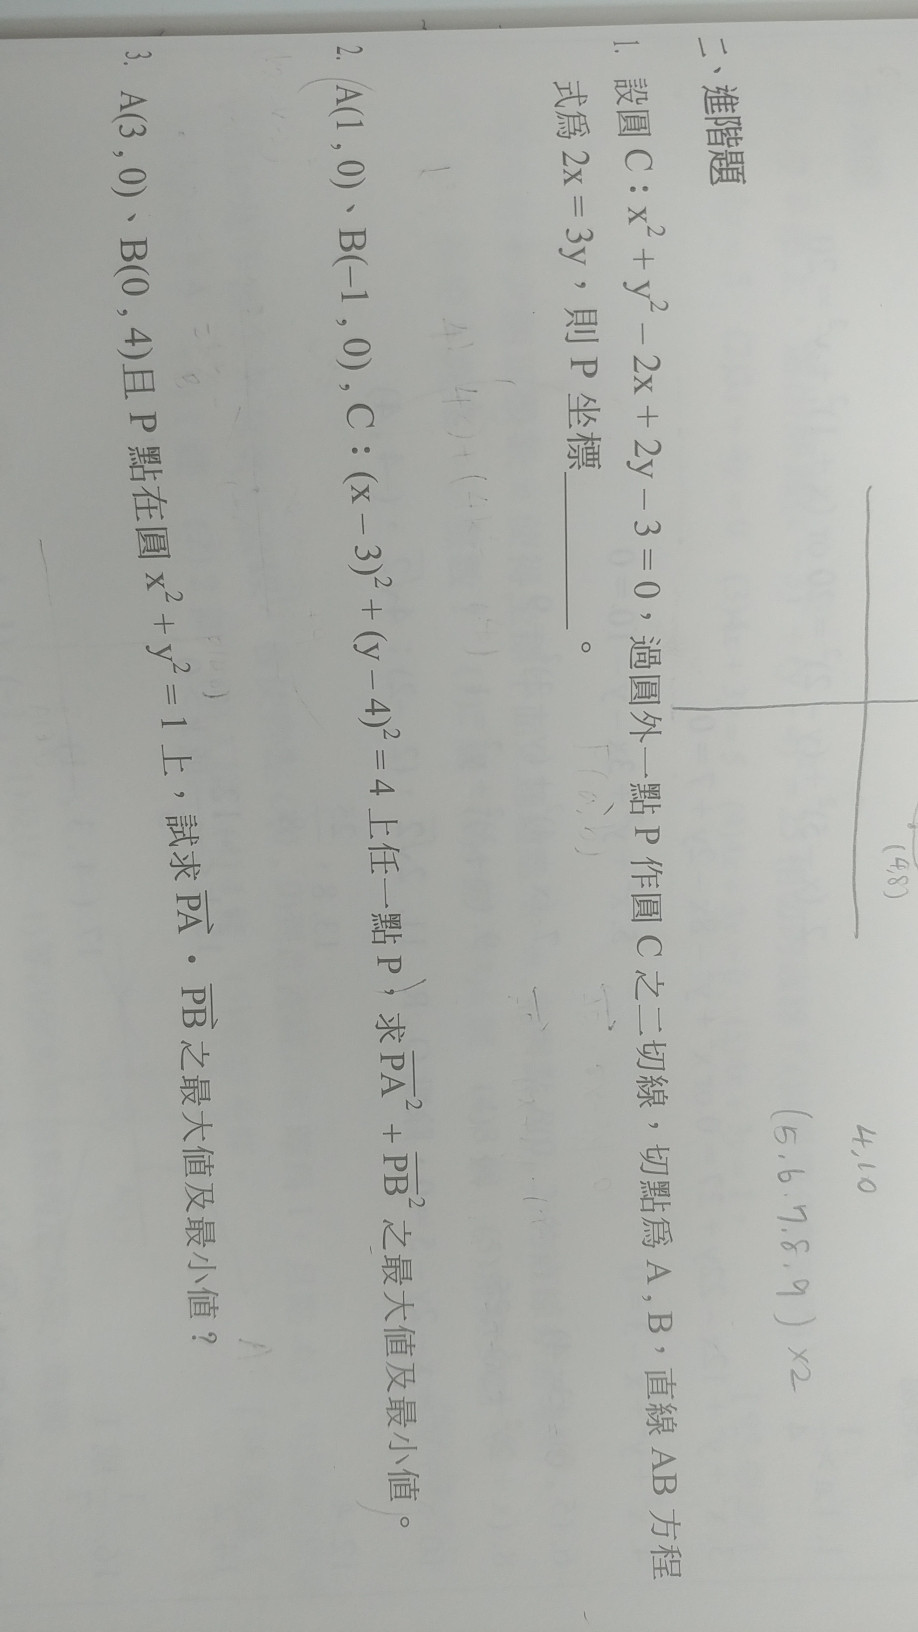 (4,8)
4,10
(5.6.7.8.9)×2
二、進階題
1. 設圓 C：x² + y² − 2x + 2y − 3 = 0，過圓外一點 P 作圓 C 之二切線，切點為 A , B，直線 AB 方程
式為 2x = 3y，則 P 坐標________。
2. A(1 , 0)、B(−1 , 0) , C：(x − 3)² + (y − 4)² = 4 上任一點 P，求 \overline{PA}² + \overline{PB}² 之最大值及最小值。
3. A(3 , 0)、B(0 , 4)且 P 點在圓 x² + y² = 1 上，試求 \overrightarrow{PA}・\overrightarrow{PB} 之最大值及最小值？